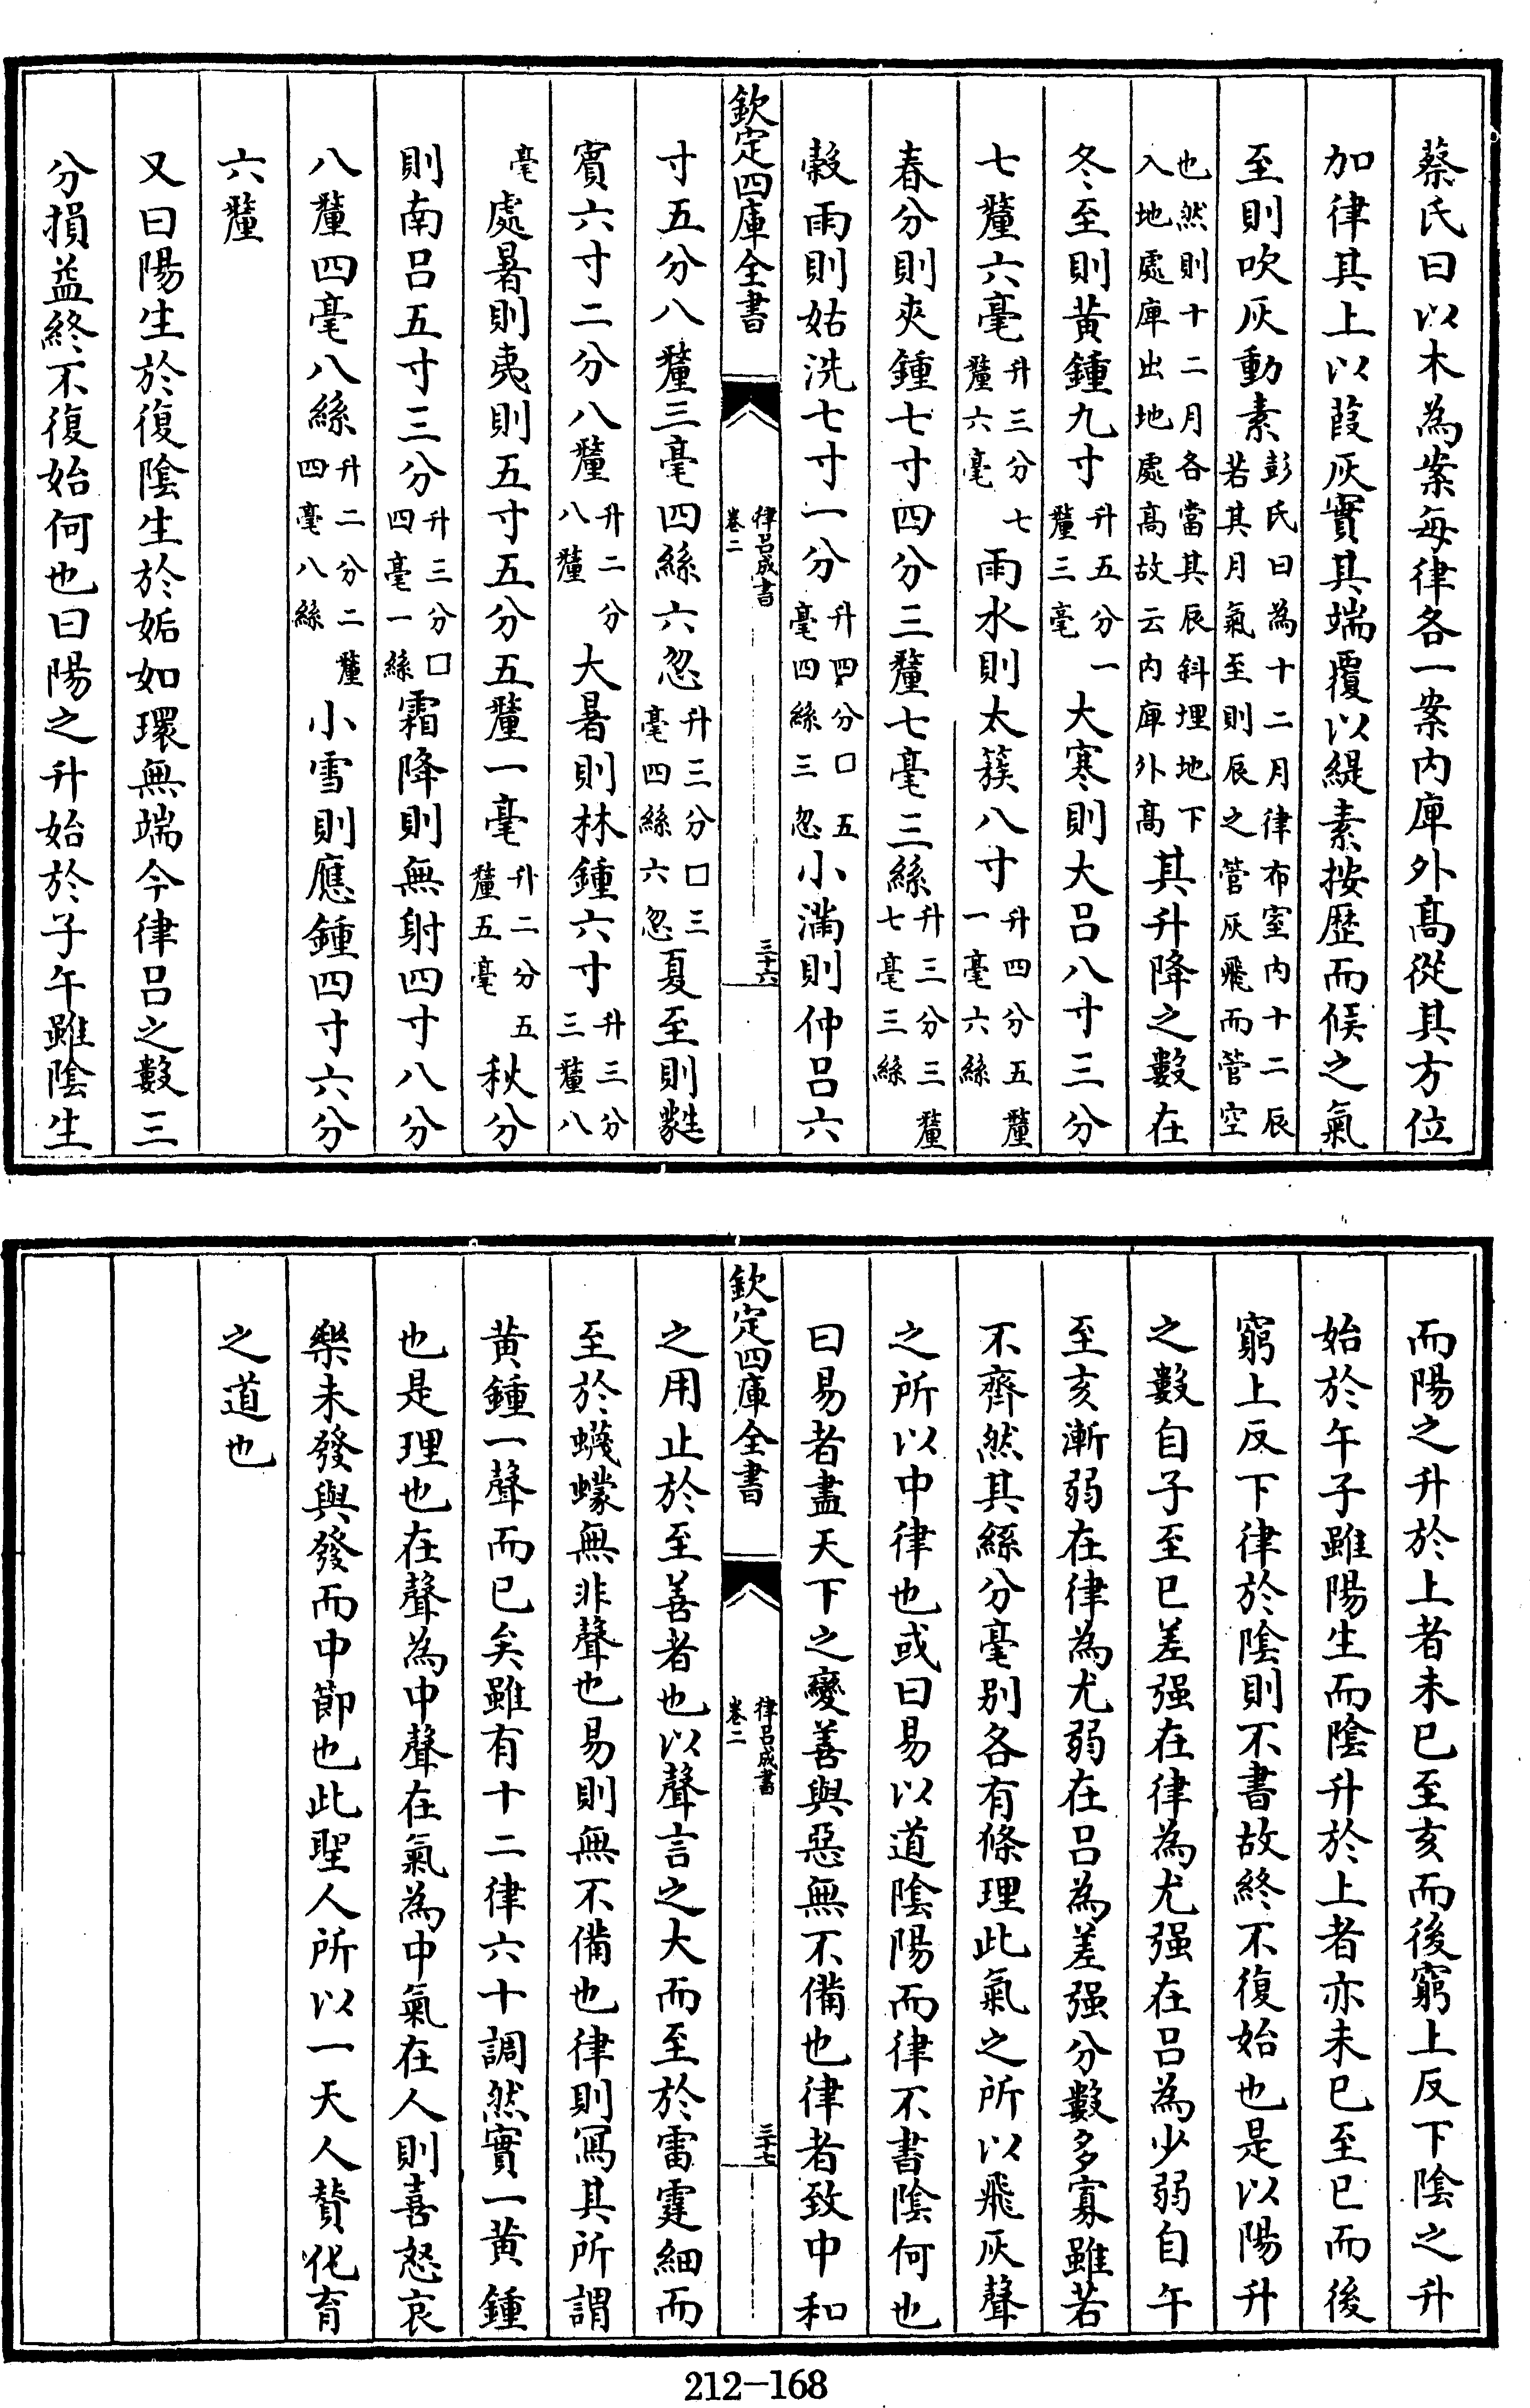 蔡氏曰以木為案每律各一案内庳外髙從其方位
加律其上以葭灰實其端覆以緹素按歴而候之氣
至則吹灰動素彭氏曰為十二月律布室内十二辰若其月氣至則辰之管灰飛而管空
也然則十二月各當其辰斜埋地下入地處庳出地處髙故云内庳外髙其升降之數在
冬至則黄鍾九寸升五分一釐三毫大寒則大吕八寸三分
七釐六毫升三分七釐六毫雨水則太簇八寸升四分五釐一毫六絲
春分則夾鍾七寸四分三釐七毫三絲升三分三釐七毫三絲
榖雨則姑洗七寸一分升四分口五毫四絲三忽小滿則仲吕六
欽定四庫全書
律吕成書
卷二
三十六
寸五分八釐三毫四絲六忽升三分口三毫四絲六忽夏至則蕤
賓六寸二分八釐升二分八釐大暑則林鍾六寸升三分三釐八
毫處暑則夷則五寸五分五釐一毫升二分五釐五毫秋分
則南吕五寸三分升三分口四毫一絲霜降則無射四寸八分
八釐四毫八絲升二分二釐四毫八絲小雪則應鍾四寸六分
六釐
又曰陽生於復陰生於姤如環無端今律吕之數三
分損益終不復始何也曰陽之升始於子午雖陰生
而陽之升於上者未已至亥而後窮上反下陰之升
始於午子雖陽生而陰升於上者亦未已至巳而後
窮上反下律於陰則不書故終不復始也是以陽升
之數自子至巳差强在律為尤强在吕為少弱自午
至亥漸弱在律為尤弱在吕為差强分數多寡雖若
不齊然其絲分毫别各有條理此氣之所以飛灰聲
之所以中律也或曰易以道陰陽而律不書陰何也
曰易者盡天下之變善與惡無不備也律者致中和
欽定四庫全書
律吕成書
卷二
三十七
之用止於至善者也以聲言之大而至於雷霆細而
至於蠛蠓無非聲也易則無不備也律則冩其所謂
黄鍾一聲而已矣雖有十二律六十調然實一黄鍾
也是理也在聲為中聲在氣為中氣在人則喜怒哀
樂未發與發而中節也此聖人所以一天人賛化育
之道也
212-168